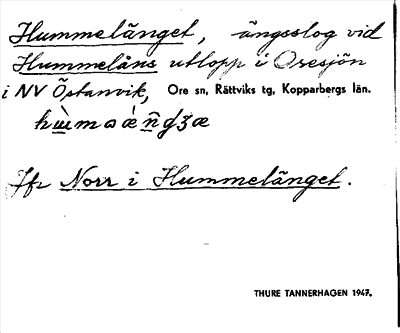 Hummelänget, ängsslog vid
Hummelåns utlopp i Oresjön
i NV Östanvik, Ore sn, Rättviks tg, Kopparbergs län.
Jfr Norr i Hummelänget.
THURE TANNERHAGEN 1947.